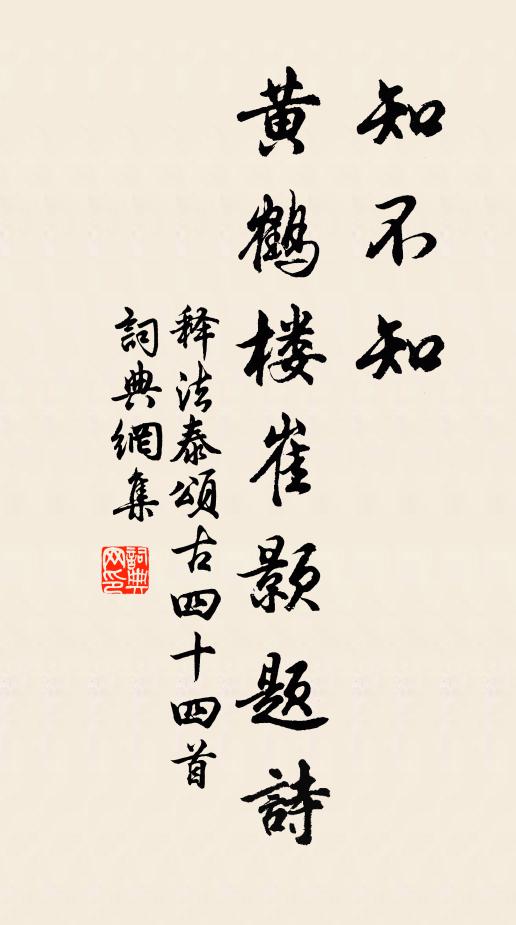 知不知
黄鹤楼崔颢题詩
释法泰頌古四十四首
詞典網集
詞典网印